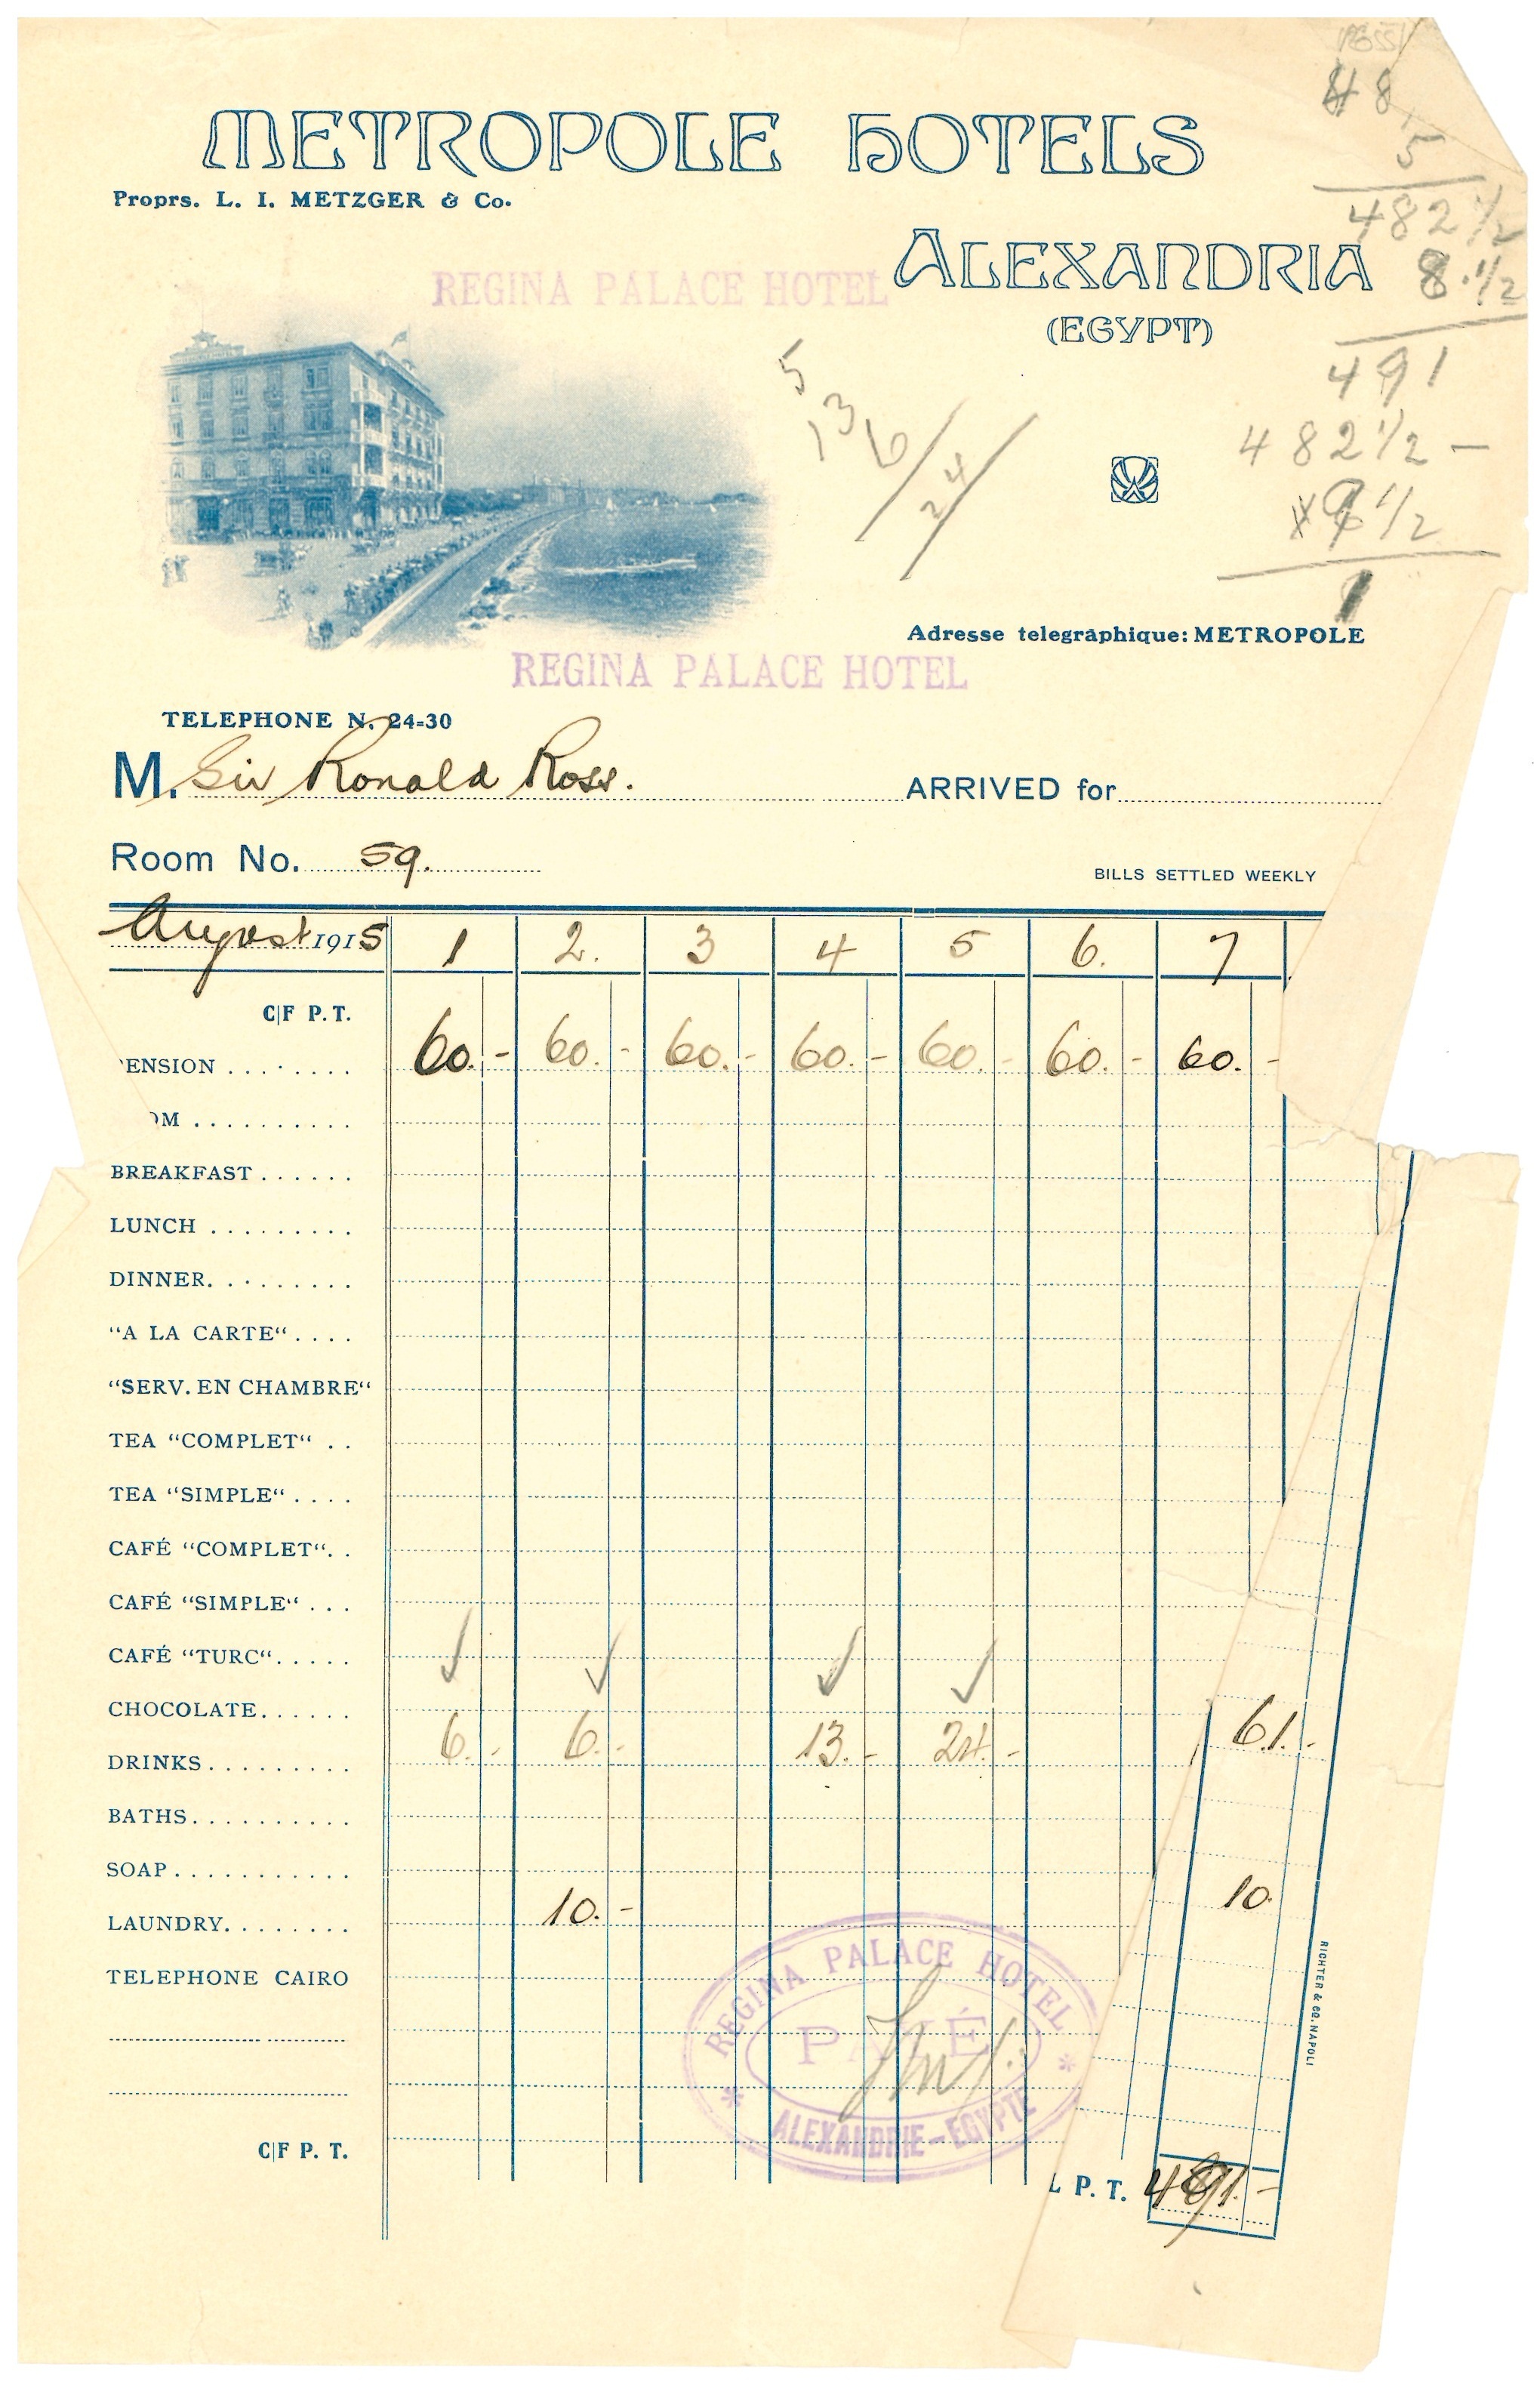 48
5
METROPOLE HOTELS
Proprs. L. I. METZGER & Co.
482 1/2
8 1/2
REGINA PALACE HOTEL
ALEXANDRIA
(EGYPT)
491
482 1/2 -
5
13
6/
24/
1
Adresse telegraphique: METROPOLE
REGINA PALACE HOTEL
TELEPHONE N. 24-30
M. Sir Ronald Ross. ARRIVED for
Room No. 59.
BILLS SETTLED WEEKLY
August 1915 1 2. 3 4 5 6. 7
C|F P. T.
ENSION 60.- 60.- 60.- 60.- 60.- 60.- 60.-
OM
BREAKFAST
LUNCH
DINNER
"A LA CARTE"
"SERV. EN CHAMBRE"
TEA "COMPLET"
TEA "SIMPLE"
CAFÉ "COMPLET"
CAFÉ "SIMPLE"
CAFÉ "TURC" ✓ ✓ ✓ ✓
CHOCOLATE
DRINKS 6.- 6.- 13.- 24.- 61.-
BATHS
SOAP
LAUNDRY 10.- 10.
TELEPHONE CAIRO
REGINA PALACE HOTEL
PAYÉ
ALEXANDRIE - EGYPTE
RICHTER & CO. NAPOLI
C|F P. T.
L P. T. 491.-